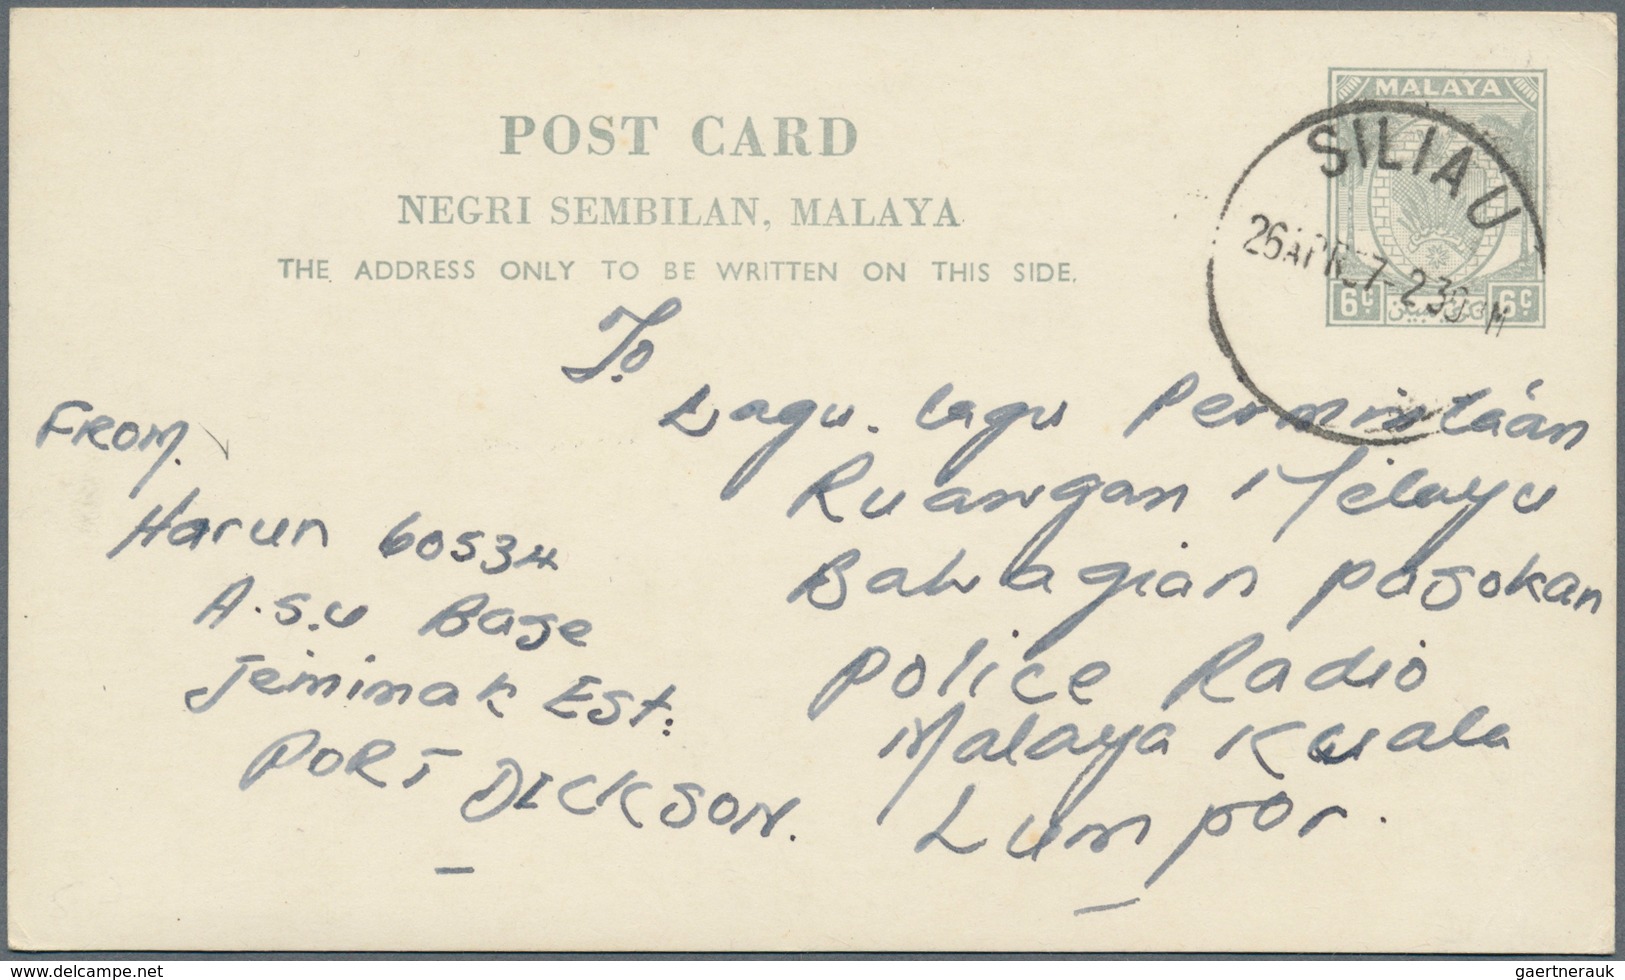 POST CARD
NEGRI SEMBILAN, MALAYA
THE ADDRESS ONLY TO BE WRITTEN ON THIS SIDE.
MALAYA
6c 6c
SILIAU
26 APR 57-2 30 M
To
Lagu. lagu Permintáán
Ruangan Melayu
Bahagian pasokan
Police Radio
Malaya Kuala
Lumpor.
FROM.
Harun 60534
A.S.U Base
Jemimak Est.
PORT DICKSON.
Visit www.delcampe.net
gaertnerauk